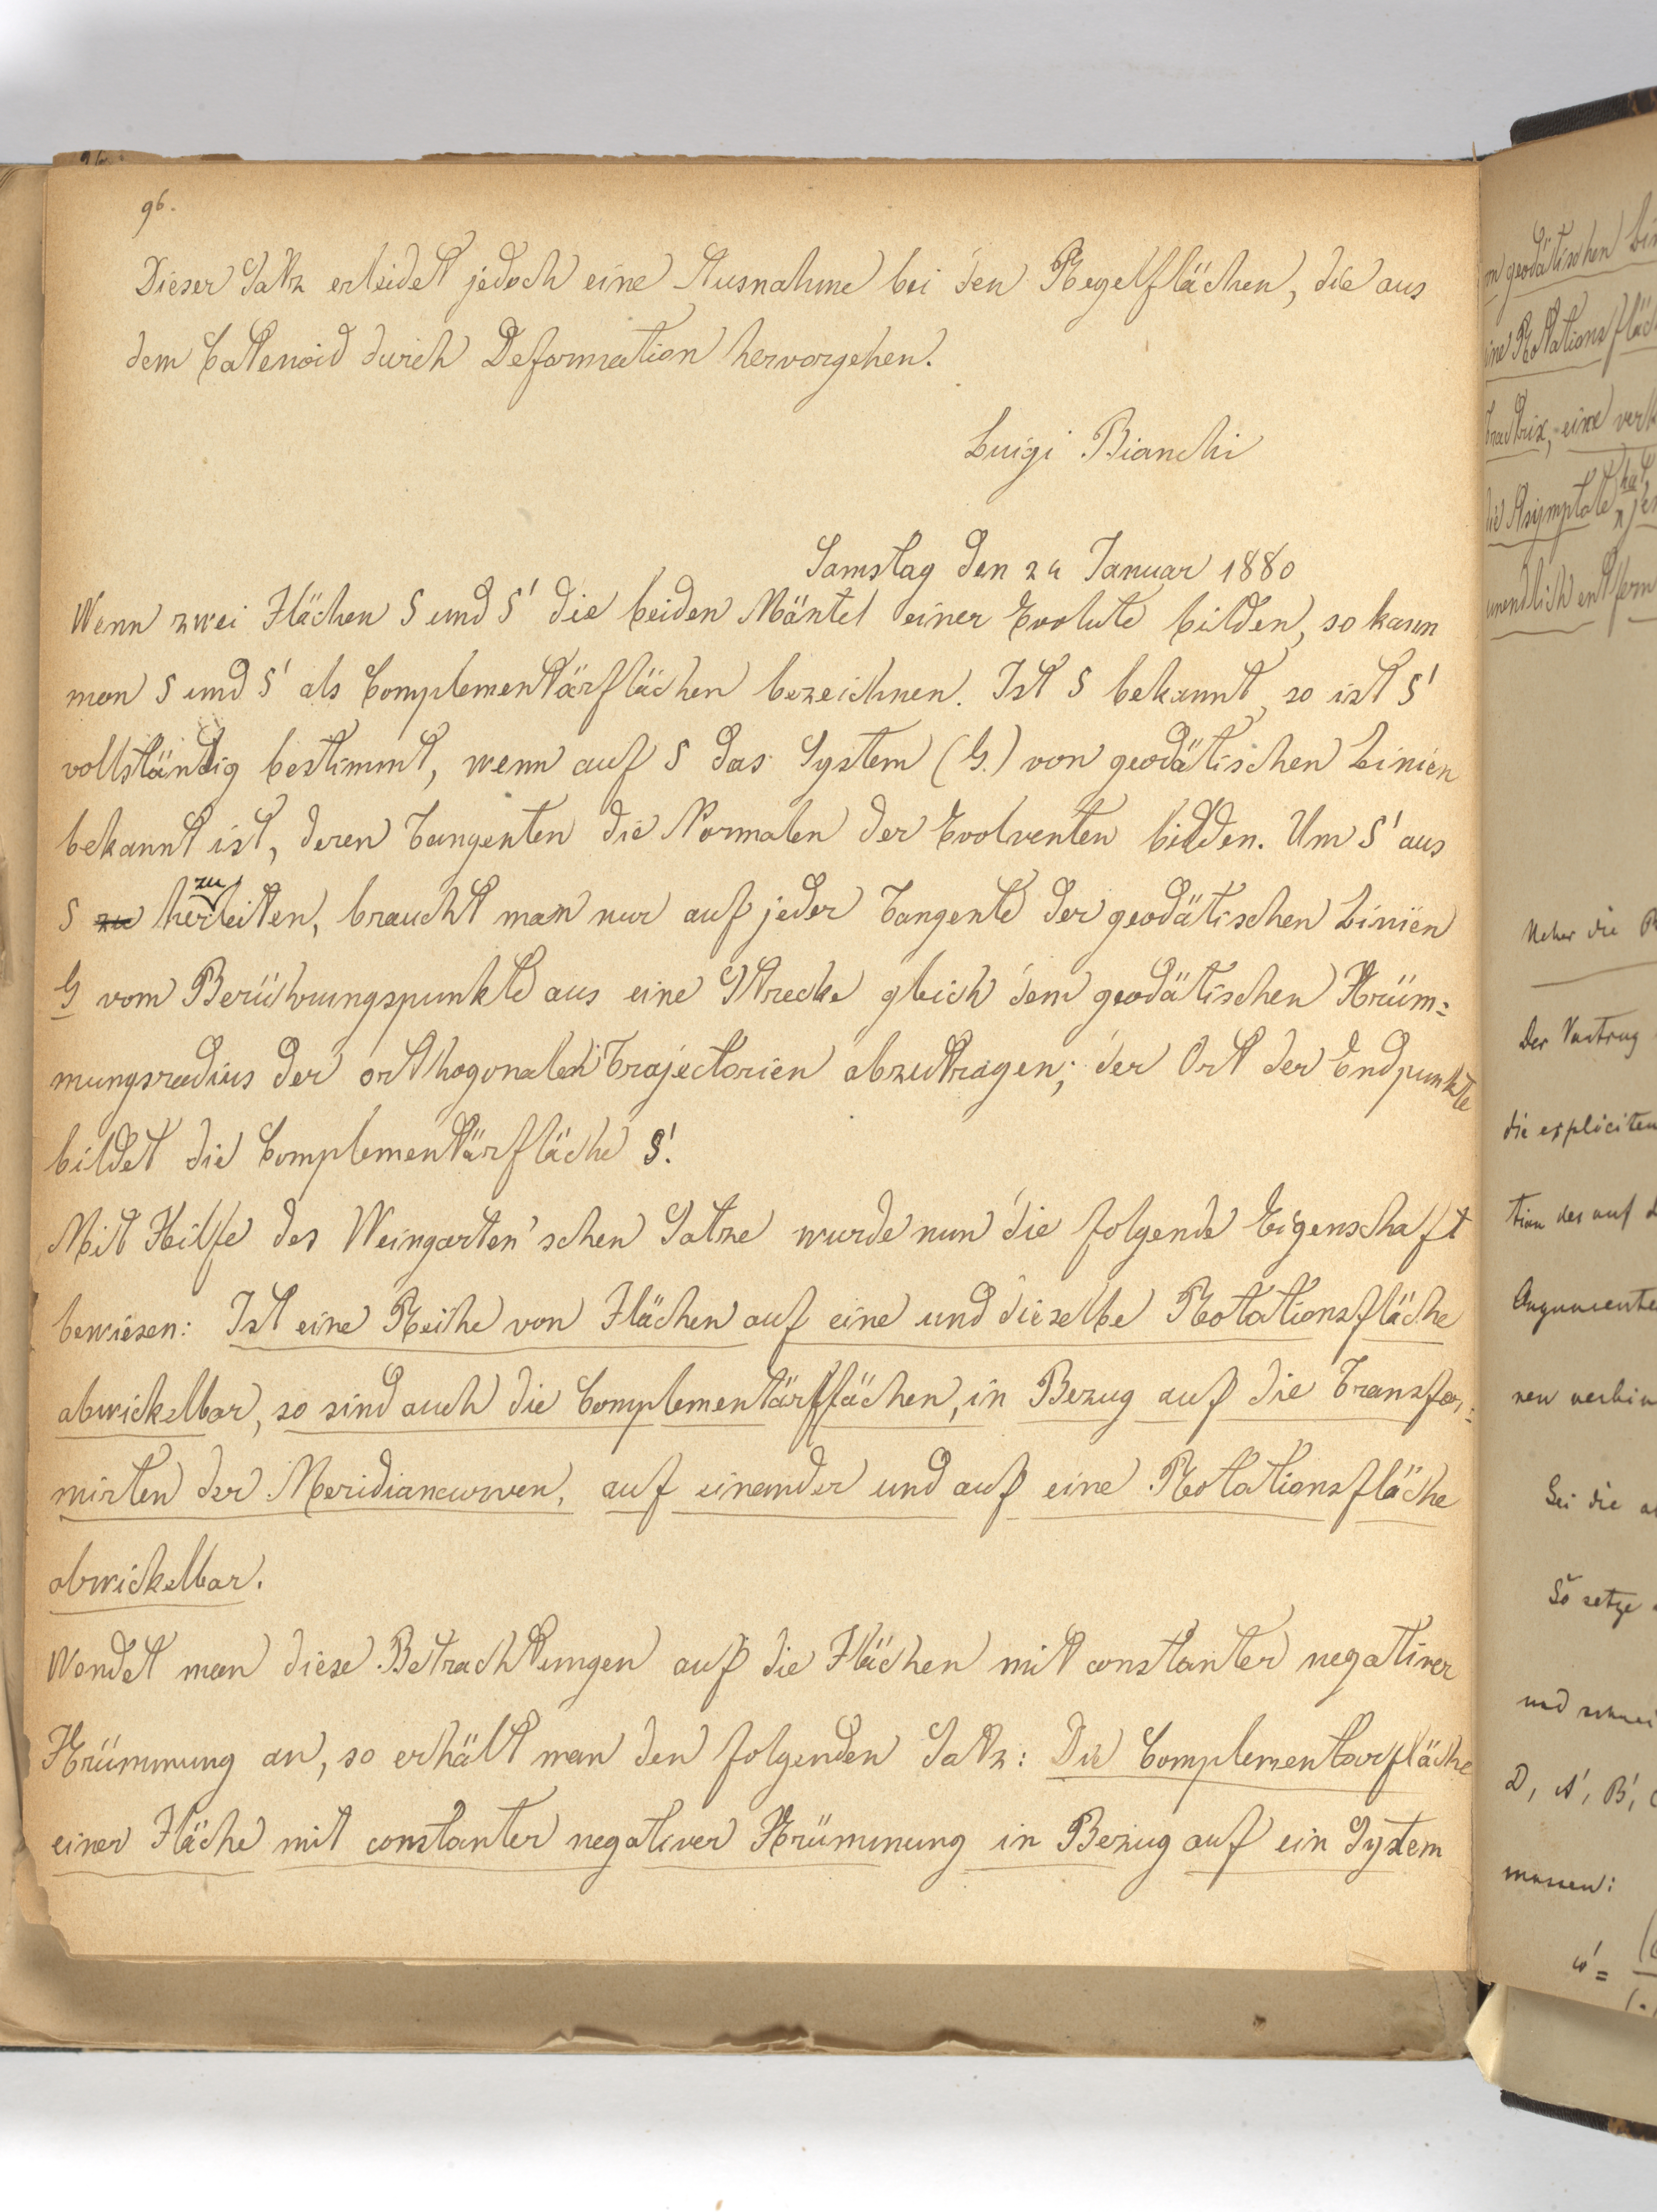 96.
Dieser Satz erleidet jedoch eine Ausnahme bei den Regelflächen, die aus
dem Catenoid durch Deformation hervorgehen.
Luigi Bianchi
Samstag den 24 Januar 1880
Wenn zwei Flächen S und S' die beiden Mäntel einer Evolute bilden, so kann
man S und S' als Complementärflächen bezeichnen. Ist S bekannt, so ist S'
vollständig bestimmt, wenn auf S das System (G.) von geodätischen Linien
bekannt ist, deren Tangenten die Normalen der Evolventen bilden. Um S' aus
S zu herzuleiten, braucht man nur auf jeder Tangente der geodätischen Linien
G vom Berührungspunkte aus eine Strecke gleich dem geodätischen Krüm=
mungsradius der orthogonalen Trajectorien abzutragen; der Ort der Endpunkte
bildet die Complementärfläche S'.
Mit Hilfe des Weingarten'schen Satze wurde nun die folgende Eigenschaft
bewiesen: Ist eine Reihe von Flächen auf eine und dieselbe Rotationsfläche
abwickelbar, so sind auch die Complementärflächen, in Bezug auf die Transfor=
mirten der Meridiancurven, auf einander und auf eine Rotationsfläche
abwickelbar.
Wendet man diese Betrachtungen auf die Flächen mit constanter negativer
Krümmung an, so erhält man den folgenden Satz: Die Complementarfläche
einer Fläche mit constanter negativer Krümmung in Bezug auf ein System
geodätischen
eine Rotationsfläch
die Asymptote hat,
unendlich entfern
Ueber die
Der Vortrag
die expliciten
tion der auf
Argumente
Sei die
So setze
und
D, A', B',
massen:
w' =